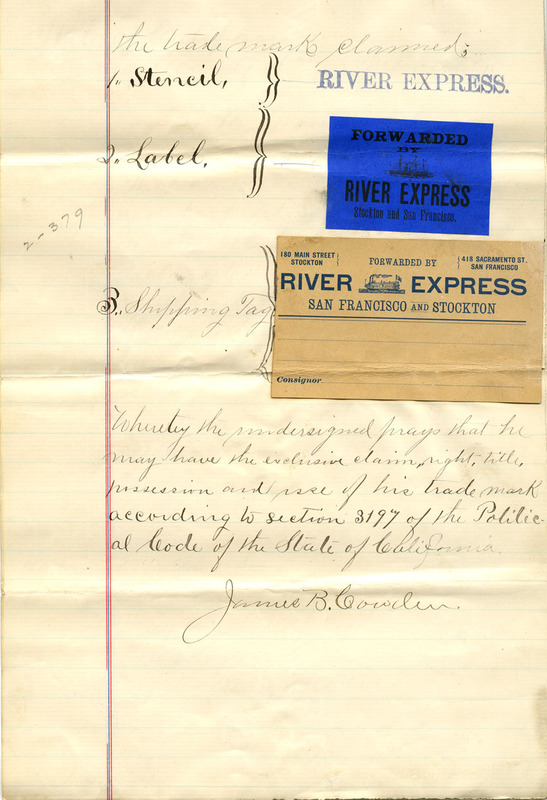 the trade mark claimed;
1., Stencil,
RIVER EXPRESS.
2., Label,
FORWARDED
BY
RIVER EXPRESS
Stockton and San Francisco.
2-379
3., Shipping Tag
180 MAIN STREET
STOCKTON
FORWARDED BY
418 SACRAMENTO ST.
SAN FRANCISCO
RIVER EXPRESS
SAN FRANCISCO AND STOCKTON
Consignor
Whereby the undersigned prays that he
may have the exclusive claim, right, title,
possession and use of his trade mark
according to section 3197 of the Politic-
al Code of the State of California.
James B. Cowden.